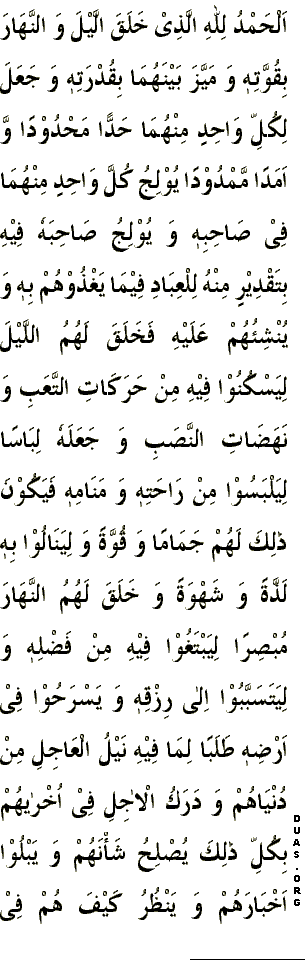 اَلْحَمْدُ لِلّٰهِ الَّذِىْ خَلَقَ الَّيْلَ وَ النَّهَارَ
بِقُوَّتِهٖ وَ مَيَّزَ بَيْنَهُمَا بِقُدْرَتِهٖ وَ جَعَلَ
لِكُلِّ وَاحِدٍ مِنْهُمَا حَدًّا مَحْدُوْدًا وَّ
اَمَدًا مَّمْدُوْدًا يُوْلِجُ كُلَّ وَاحِدٍ مِنْهُمَا
فِىْ صَاحِبِهٖ وَ يُوْلِجُ صَاحِبَهٗ فِيْهِ
بِتَقْدِيْرٍ مِنْهُ لِلْعِبَادِ فِيْمَا يَغْذُوْهُمْ بِهٖ وَ
يُنْشِئُهُمْ عَلَيْهِ فَخَلَقَ لَهُمُ اللَّيْلَ
لِيَسْكُنُوْا فِيْهِ مِنْ حَرَكَاتِ التَّعَبِ وَ
نَهَضَاتِ النَّصَبِ وَ جَعَلَهٗ لِبَاسًا
لِيَلْبَسُوْا مِنْ رَاحَتِهٖ وَ مَنَامِهٖ فَيَكُوْنَ
ذٰلِكَ لَهُمْ جَمَامًا وَ قُوَّةً وَ لِيَنَالُوْا بِهٖ
لَذَّةً وَ شَهْوَةً وَ خَلَقَ لَهُمُ النَّهَارَ
مُبْصِرًا لِيَبْتَغُوْا فِيْهِ مِنْ فَضْلِهٖ وَ
لِيَتَسَبَّبُوْا اِلٰى رِزْقِهٖ وَ يَسْرَحُوْا فِىْ
اَرْضِهٖ طَلَبًا لِمَا فِيْهِ نَيْلُ الْعَاجِلِ مِنْ
دُنْيَاهُمْ وَ دَرَكُ الْاٰجِلِ فِىْ اُخْرٰيهُمْ
بِكُلِّ ذٰلِكَ يُصْلِحُ شَأْنَهُمْ وَ يَبْلُوْا
اَخْبَارَهُمْ وَ يَنْظُرُ كَيْفَ هُمْ فِىْ
DUAS.ORG